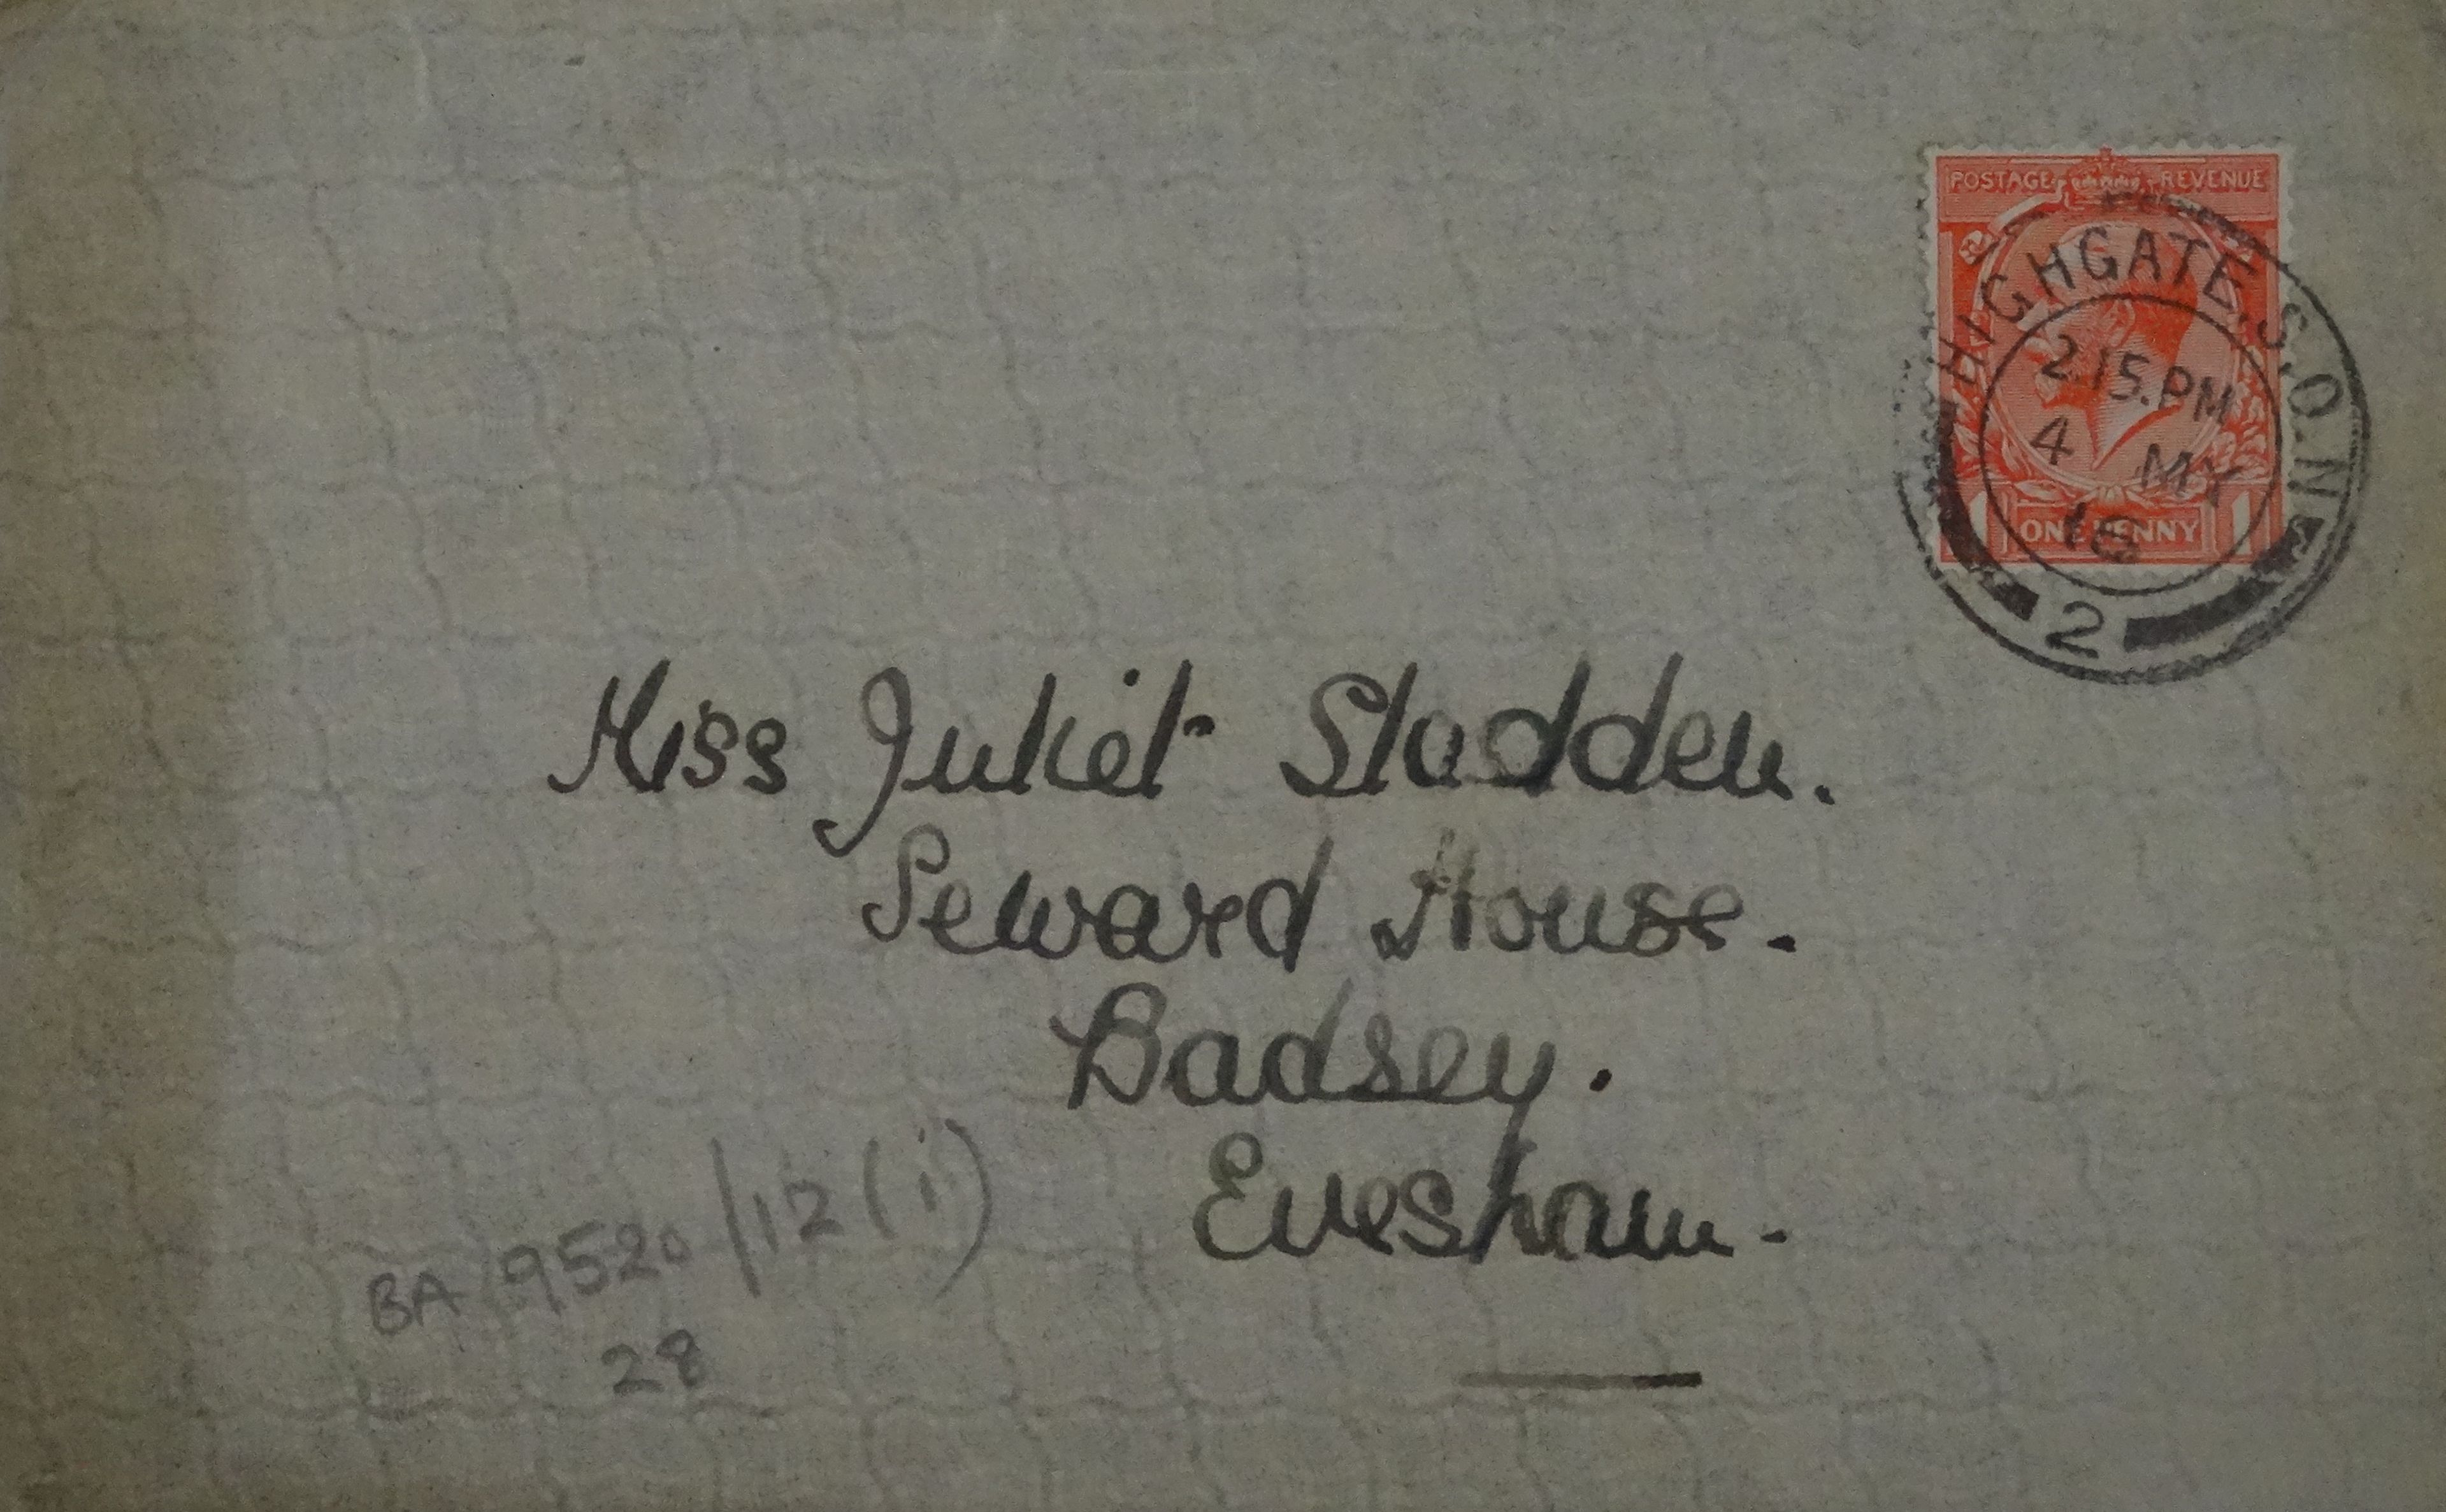 POSTAGE REVENUE
HIGHGATE.S.O.N
2.15.PM
4 MY
16
ONE PENNY
1 1
2
Miss Juliet Sladden.
Seward House.
Badsey.
Evesham.
BA 9520/12(i)
28